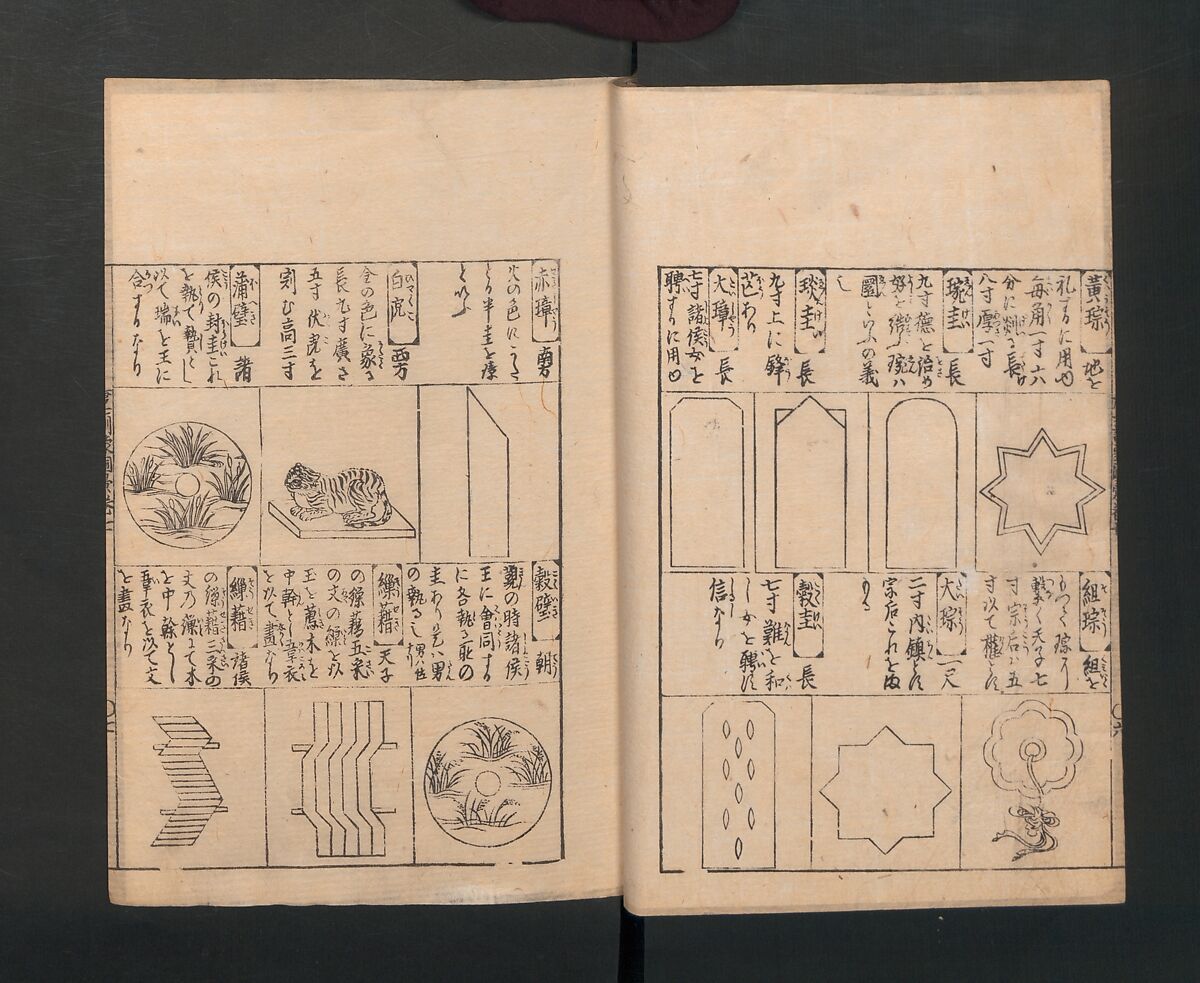 黄琮 地を
礼するに用ゆ
毎角一寸六
分に剡る長
八寸厚一寸
琬圭 長
九寸徳を治め
好を結ぶ琬ハ
圜といふの義
也
琰圭 長
九寸上に鋒
芒あり
大璋 長
七寸諸侯女を
聘するに用ゆ
組琮 組を
もつて琮に
撃ぐ天子七
寸宗后ハ五
寸以て権とす
大琮 一尺
二寸内鎮とす
宗后これを守
る
穀圭 長
七寸難を和
し女を聘す
信なり
赤璋 南方
火の色にかたどり半圭を
といふ
白虎 西方
金の色に象る
長九寸廣さ
五寸伏虎を
刻む高三寸
蒲璧 諸
侯の封圭これ
を執て贄とし
以て瑞を王に
合するなり
穀璧 朝
覲の時諸侯
王に會同する
に各執る所の
圭あり是ハ男
の執る也
繅藉 天子
の繅藉五采
の文の繅を以
玉を薦木を
中幹とし韋衣
を以て畫なり
繅藉 諸侯
の繅藉三采の
文乃繅にて木
を中幹とし
韋衣を以て文
を畫なり